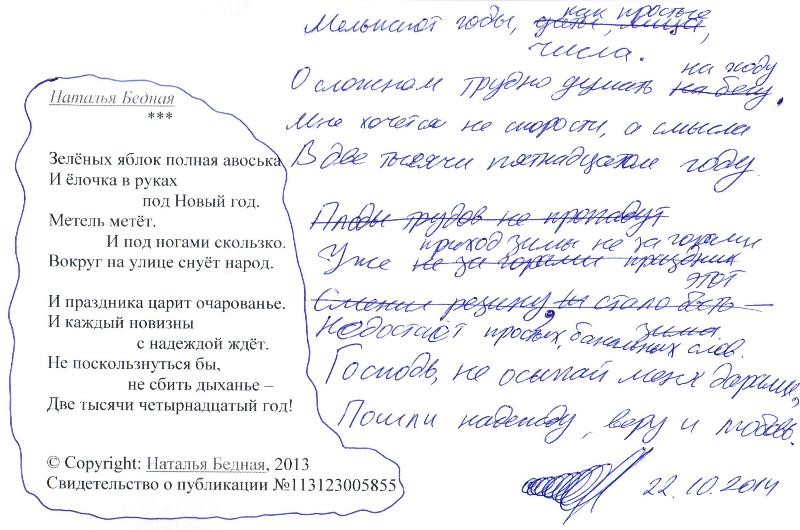 Наталья Бедная
***
Зелёных яблок полная авоська
И ёлочка в руках
под Новый год.
Метель метёт.
И под ногами скользко.
Вокруг на улице снуёт народ.
И праздника царит очарованье.
И каждый новизны
с надеждой ждёт.
Не поскользнуться бы,
не сбить дыханье –
Две тысячи четырнадцатый год!
© Copyright: Наталья Бедная, 2013
Свидетельство о публикации №113123005855
как простые
Мелькают годы, даты, лица,
числа.
на ходу
О сложном трудно думать на бегу.
Мне хочется не скорости, а смысла
В две тысячи пятнадцатом году.
Плоды трудов не пропадут
приход зимы не за горами
Уже не за горами праздник
этот
резину, стало быть –
зима
Недостаёт простых, банальных слов.
Господь, не осыпай меня дарами,
Пошли надежду, веру и любовь.
22.10.2014